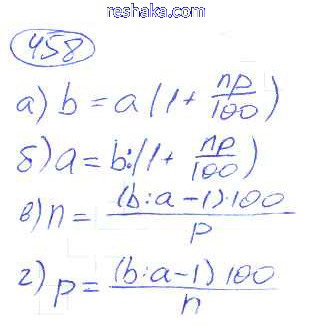 reshaka.com
458
а) b = a(1 + np/100)
б) a = b:(1 + np/100)
в) n = (b:a - 1)·100/p
г) p = (b:a - 1) 100/n